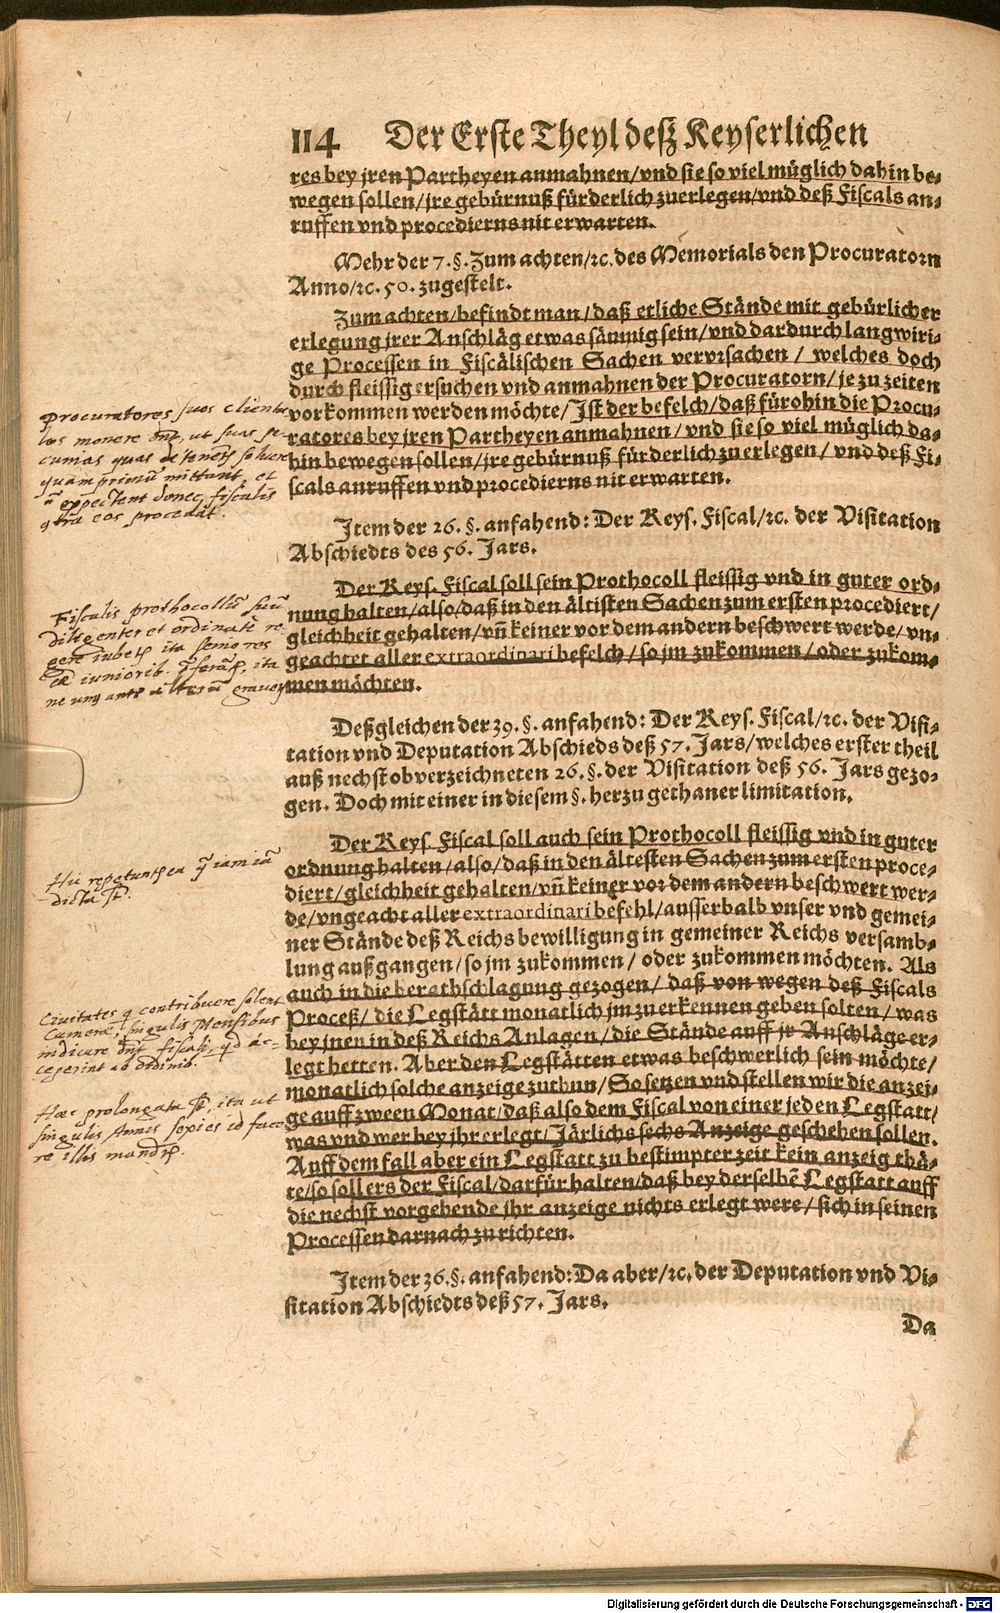 114 Der Erste Theyl deß Keyserlichen
res bey jren Partheyen anmahnen/vnd sie so viel müglich dahin be-
wegen sollen/jre gebürnuß fürderlich zuerlegen/vnd deß Fiscals an-
ruffen vnd procedierns nit erwarten.
Mehr der 7. §. Zum achten/ꝛc. des Memorials den Procuratorn
Anno/ꝛc. 50. zugestelt.
Zum achten/befindt man/daß etliche Stände mit gebürlicher
erlegung jrer Anschläg etwas säumig sein/vnd dardurch langwiri-
ge Processen in Fiscälischen Sachen vervrsachen/ welches doch
durch fleissig ersuchen vnd anmahnen der Procuratorn/je zu zeiten
vorkommen werden möchte/Ist der befelch/daß fürohin die Procu-
ratores bey jren Partheyen anmahnen/ vnd sie so viel müglich da-
hin bewegen sollen/jre gebürnuß fürderlich zuerlegen/ vnd deß Fi-
scals anruffen vnd procedierns nit erwarten.
Procuratores suos clientu
los monere ut suas pe-
cumas quas solvere
quam primũ mittant, et
expectent donec fiscalis
eos procedat.
Item der 26. §. anfahend: Der Keys. Fiscal/ꝛc. der Visitation
Abschiedts des 56. Jars.
Der Keys. Fiscal soll sein Prothocoll fleissig vnd in guter ord-
nung halten/also/daß in den ältisten Sachen zum ersten procediert/
gleichheit gehalten/vñ keiner vor dem andern beschwert werde/vn-
geachtet aller extraordinari befelch/so jm zukommen/oder zukom-
men möchten.
Fiscalis prothocollũ suũ
diligenter et ordinatè re-
gere ita seniores
iuniorib. ita
ne
Deßgleichen der 39. §. anfahend: Der Keys. Fiscal/ꝛc. der Visi-
tation vnd Deputation Abschieds deß 57. Jars/welches erster theil
auß nechst obverzeichneten 26. §. der Visitation deß 56. Jars gezo-
gen. Doch mit einer in diesem §. herzu gethaner limitation.
Der Keys. Fiscal soll auch sein Prothocoll fleissig vnd in guter
ordnung halten/also/daß in den ältesten Sachen zum ersten proce-
diert/gleichheit gehalten/vñ keiner vor dem andern beschwert wer-
de/vngeacht aller extraordinari befehl/ausserhalb vnser vnd gemei-
ner Stände deß Reichs bewilligung in gemeiner Reichs versamb-
lung außgangen/so jm zukommen/ oder zukommen möchten. Als
auch in die berathschlagung gezogen/ daß von wegen deß Fiscals
Proceß/ die Legstätt monatlich jm zuerkennen geben solten/ was
bey jnen in deß Reichs Anlagen/die Stände auff jr Anschläge er-
legt hetten. Aber den Legstätten etwas beschwerlich sein möchte/
monatlich solche anzeige zuthun/So setzen vnd stellen wir die anzei-
ge auff zween Monat/daß also dem Fiscal von einer jeden Legstatt/
was vnd wer bey jhr erlegt/Järlichs sechs Anzeige geschehen sollen.
Auff dem fall aber ein Legstatt zu bestimpter zeit kein anzeig thä-
te/so soll ers der Fiscal/darfür halten/daß bey derselbẽ Legstatt auff
die nechst vorgehende jhr anzeige nichts erlegt were/sich in seinen
Processen darnach zu richten.
dicta
Civitates contribuere solent
singulis Mensibus
indicare
ceperint ab Ordinib.
Haec prolongata ita ut
singulis Annis sexies id face
re illis
Item der 36. §. anfahend: Da aber/ꝛc. der Deputation vnd Vi-
sitation Abschiedts deß 57. Jars.
Da
Digitalisierung gefördert durch die Deutsche Forschungsgemeinschaft - DFG